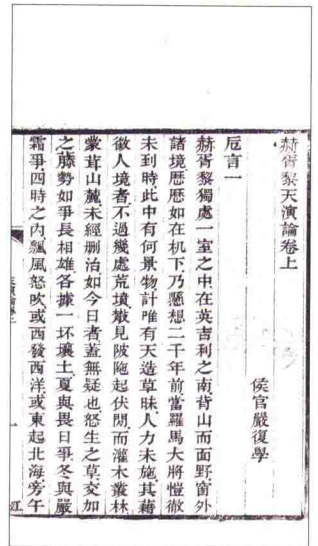 赫胥黎天演論卷上
侯官嚴復學
卮言一
赫胥黎獨處一室之中在英吉利之南背山而面野窗外
諸境歷歷如在机下乃懸想二千年前當羅馬大將愷徹
未到時此中有何景物計唯有天造草昧人力未施其藉
徵人境者不過幾處荒墳散見陂陁起伏閒而灌木叢林
蒙茸山麓未經刪治如今日者蓋無疑也怒生之草交加
之藤勢如爭長相雄各據一抔壤土夏與畏日爭冬與嚴
霜爭四時之內飄風怒吹或西發西洋或東起北海旁午
一
江